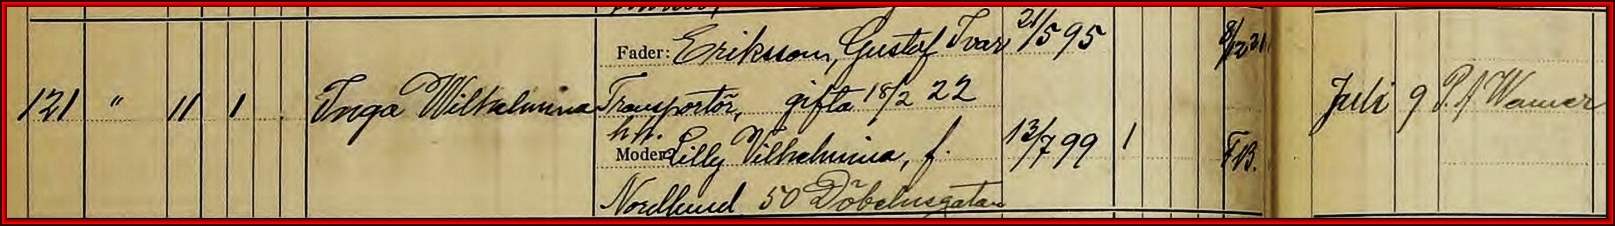 Fader: Eriksson, Gustaf Ivar 21/5 95
121 " 11 1 Inga Wilhelmina Transportör, gifta 18/2 22 Juli 9
h.h.
Moder: Lilly Vilhelmina, f. 13/7 99 1 F.B.
Nordlund 50 Döbelnsgatan